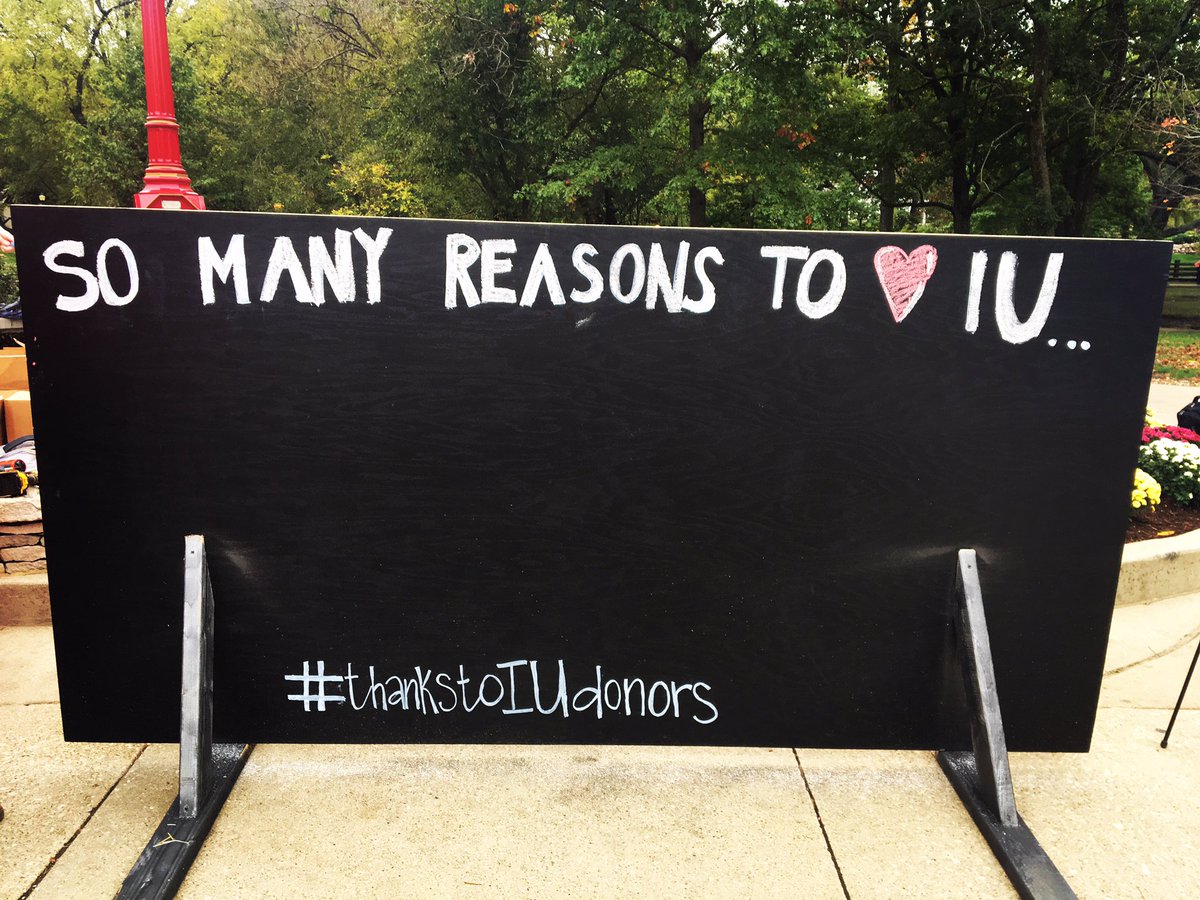 SO MANY REASONS TO ♥ IU...
#thankstoIUdonors